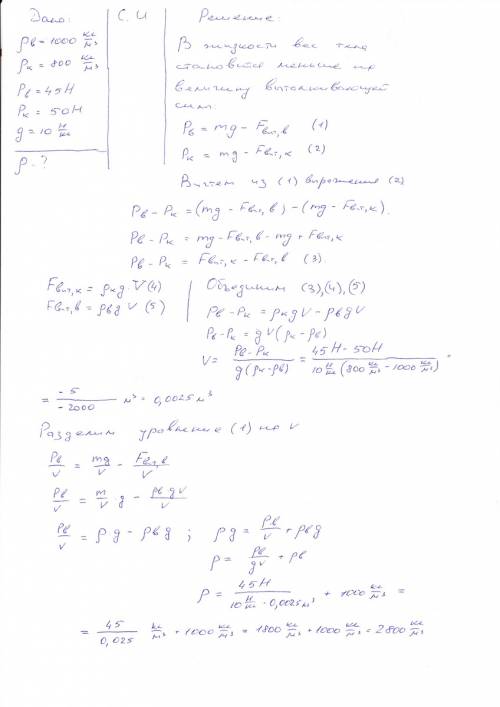 Дано:
ρв = 1000 кг/м³
ρк = 800 кг/м³
Pв = 45Н
Pк = 50Н
g = 10 Н/кг
ρ - ?
С. И
Решение:
В жидкости вес тела
становится меньше на
величину выталкивающей
силы:
Pв = mg - Fвыт, в (1)
Pк = mg - Fвыт, к (2)
Вычтем из (1) выражения (2)
Pв - Pк = (mg - Fвыт, в) - (mg - Fвыт, к).
Pв - Pк = mg - Fвыт, в - mg + Fвыт, к
Pв - Pк = Fвыт, к - Fвыт, в (3).
Fвыт, к = ρк g · V (4)
Fвыт, в = ρв g V (5)
Объединим (3), (4), (5)
Pв - Pк = ρк g V - ρв g V
Pв - Pк = g V (ρк - ρв)
V = Pв - Pк / g (ρк - ρв) = 45Н - 50Н / 10 Н/кг (800 кг/м³ - 1000 кг/м³) =
= -5 / -2000 м³ = 0,0025 м³
Разделим уровнение (1) на V
Pв/V = mg/V - Fвыт, в/V
Pв/V = m/V · g - ρв g V/V
Pв/V = ρ g - ρв g ; ρ g = Pв/V + ρв g
ρ = Pв/gV + ρв
ρ = 45Н / 10 Н/кг · 0,0025 м³ + 1000 кг/м³ =
= 45 / 0,025 кг/м³ + 1000 кг/м³ = 1800 кг/м³ + 1000 кг/м³ = 2800 кг/м³